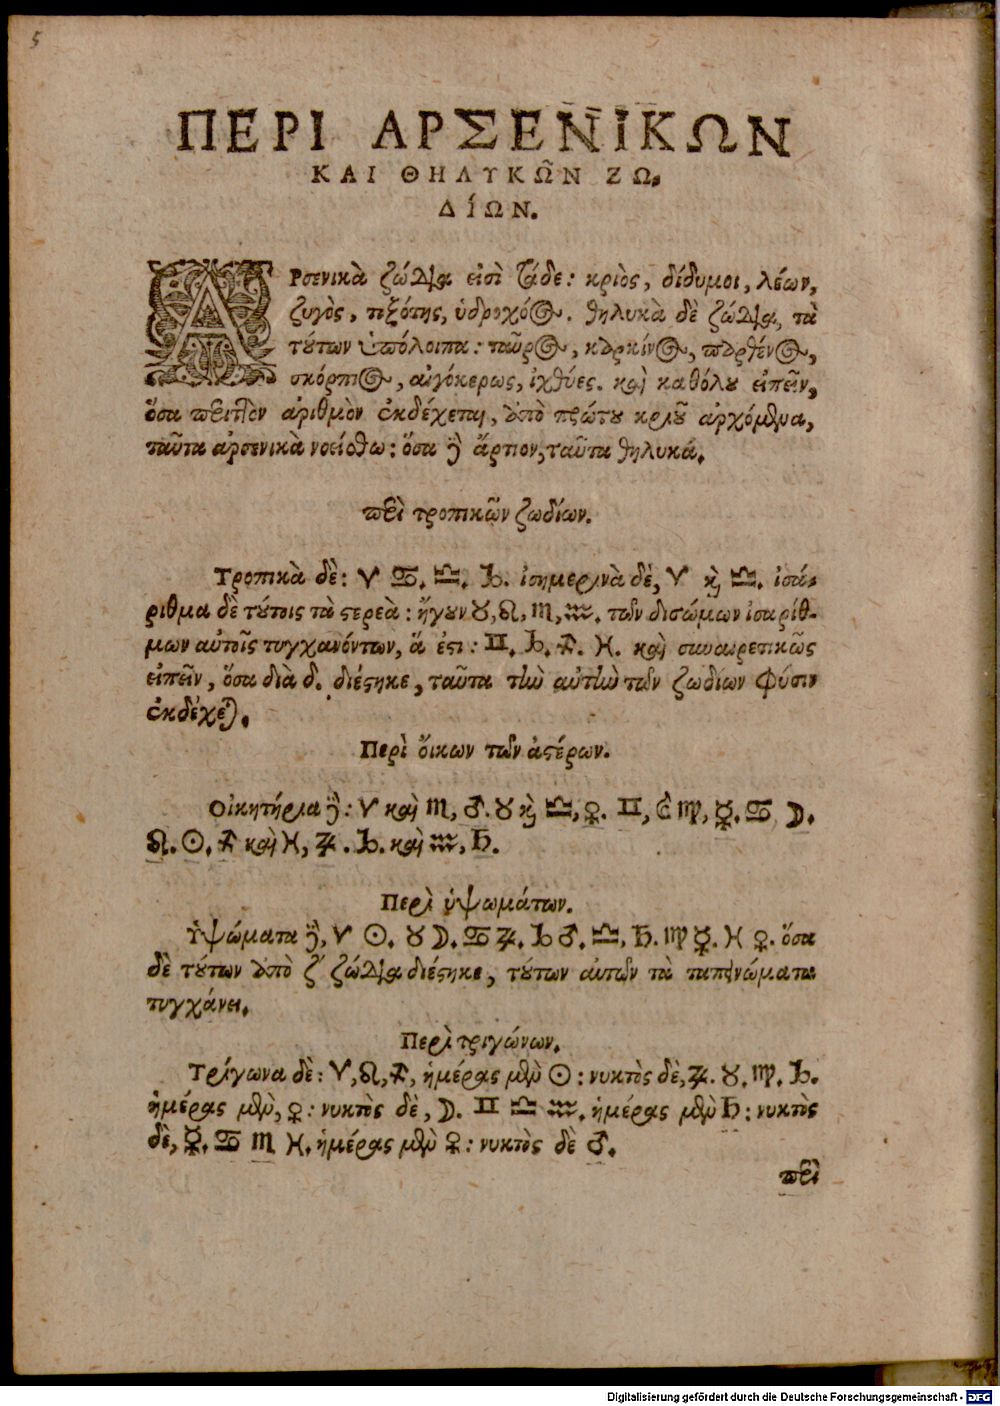 5
ΠΕΡΙ ΑΡΣΕΝΙΚΩΝ
ΚΑΙ ΘΗΛΥΚΩ͂Ν ΖΩ-
ΔΊΩΝ.
ΑΡσενικὰ ζώδια εἰσὶ τάδε: κριὸς, δίδυμοι, λέων,
ζυγὸς, τοξότης, ὑδροχόος. θηλυκὰ δὲ ζώδια, τὰ
τούτων ὑπόλοιπα: ταῦρος, καρκίνος, παρθένος,
σκόρπιος, αἰγόκερως, ἰχθύες. καὶ καθόλου εἰπεῖν,
ὅσα περιττὸν ἀριθμὸν ἐκδέχεται, ἀπὸ πρώτου κριοῦ ἀρχόμενα,
ταῦτα ἀρσενικὰ νοείσθω: ὅσα δὲ ἄρτιον, ταῦτα θηλυκά.
περὶ τροπικῶν ζωδίων.
Τροπικὰ δὲ: ♈ ♋. ♎. ♑. ἰσημερινὰ δὲ, ♈ καὶ ♎. ἰσά-
ριθμα δὲ τούτοις τὰ στερεὰ: ἤγουν ♉, ♌, ♏, ♒. τῶν δισώμων ἰσαρίθ-
μων αὐτοῖς τυγχανόντων, ἅ ἐστι: ♊. ♑. ♐. ♓. καὶ συναιρετικῶς
εἰπεῖν, ὅσα διὰ δ. διέστηκε, ταῦτα τὴν αὐτὴν τῶν ζωδίων φύσιν
ἐκδέχεται.
Περὶ οἴκων τῶν ἀστέρων.
Οἰκητήρια δὲ: ♈ καὶ ♏, ♂. ♉ καὶ ♎, ♀. ♊, καὶ ♍, ☿. ♋ ☽.
♌. ☉. ♐ καὶ ♓, ♃. ♑. καὶ ♒, ♄.
Περὶ ὑψωμάτων.
Ὑψώματα δὲ, ♈ ☉. ♉ ☽. ♋ ♃. ♑ ♂. ♎, ♄. ♍ ☿. ♓ ♀. ὅσα
δὲ τούτων ἀπὸ ζ ζώδια διέστηκε, τούτων αὐτῶν τὰ ταπεινώματα
τυγχάνει.
Περὶ τριγώνων.
Τρίγωνα δὲ: ♈, ♌, ♐, ἡμέρας μὲν ☉: νυκτὸς δὲ, ♃. ♉. ♍. ♑.
ἡμέρας μὲν, ♀: νυκτὸς δὲ, ☽. ♊ ♎ ♒. ἡμέρας μὲν ♄: νυκτὸς
δὲ, ☿. ♋ ♏ ♓. ἡμέρας μὲν ♀: νυκτὸς δὲ ♂.
περὶ
Digitalisierung gefördert durch die Deutsche Forschungsgemeinschaft - DFG